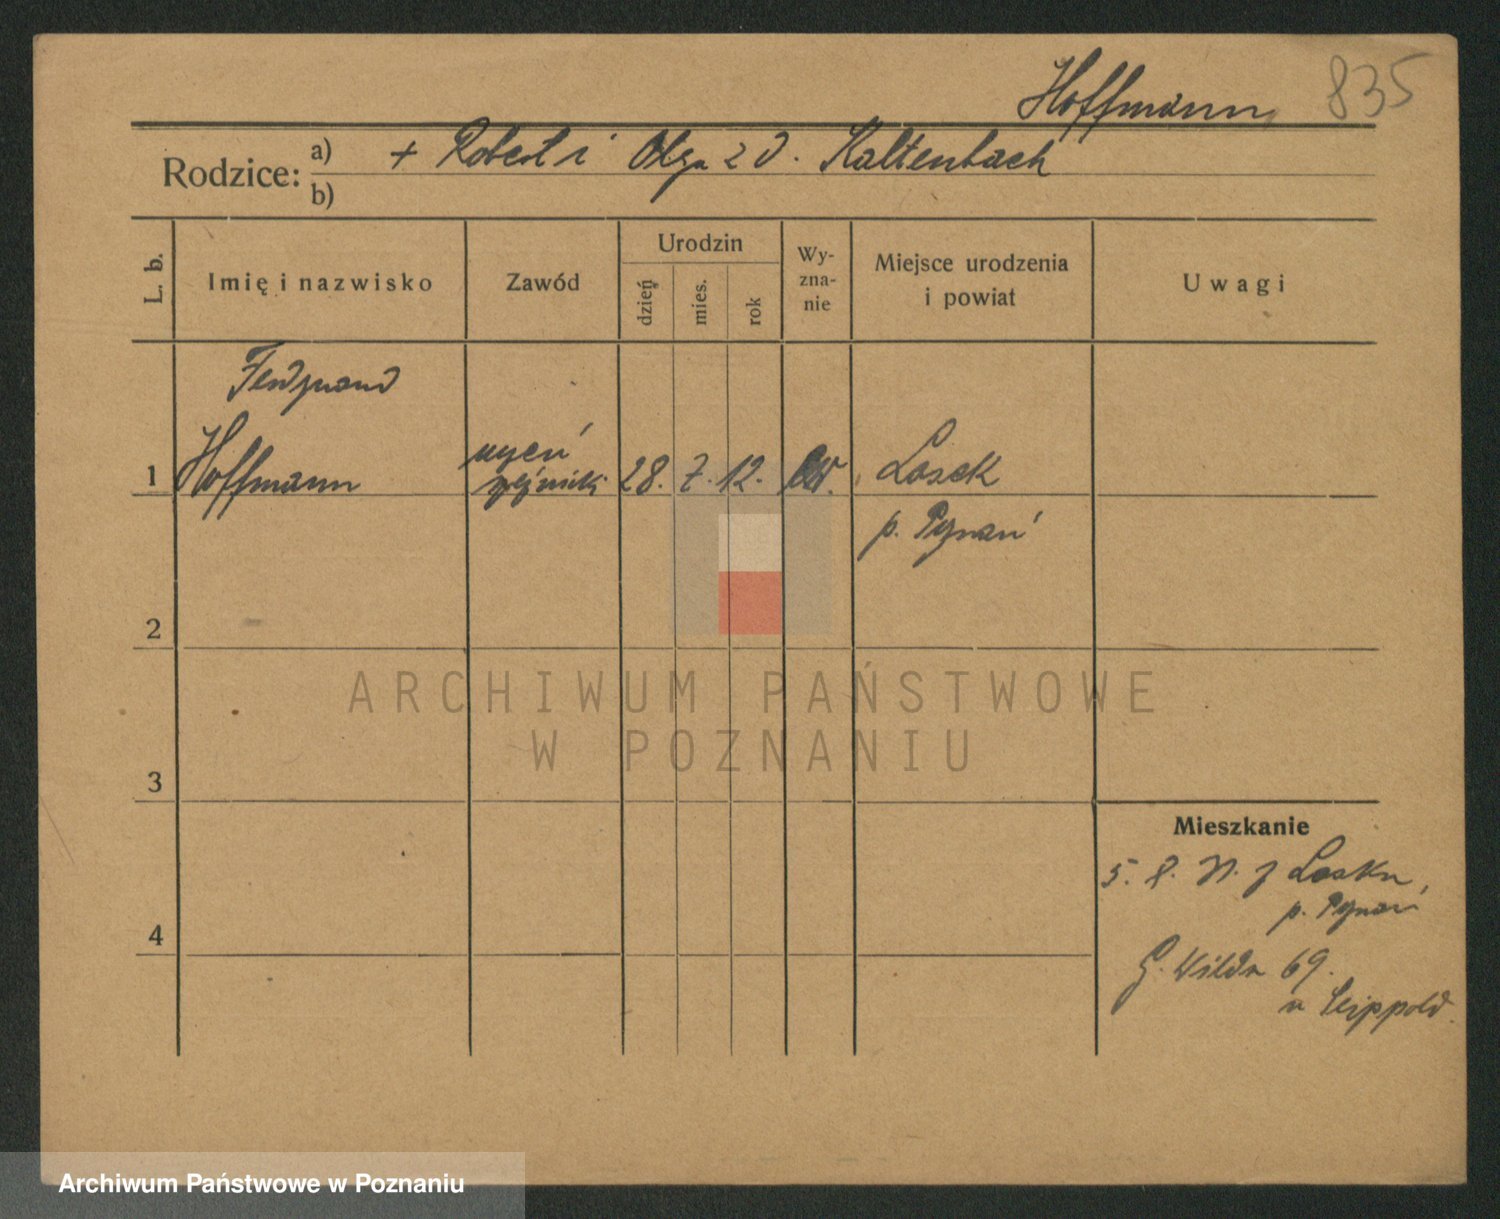 Hoffmann 835
Rodzice: a) + Robert i Olga z d. Kaltenbach
b)
L. b. Imię i nazwisko Zawód Urodzin dzień mies. rok Wy-zna-nie Miejsce urodzenia i powiat Uwagi
Ferdynand
1 Hoffmann uczeń rzeźnicki 28. 7. 12. ew. Lasek
p. Poznań
2
ARCHIWUM PAŃSTWOWE
W POZNANIU
3
Mieszkanie
z Lasku,
p. Poznań
4
G. Wilda 69.
u Leippold.
Archiwum Państwowe w Poznaniu